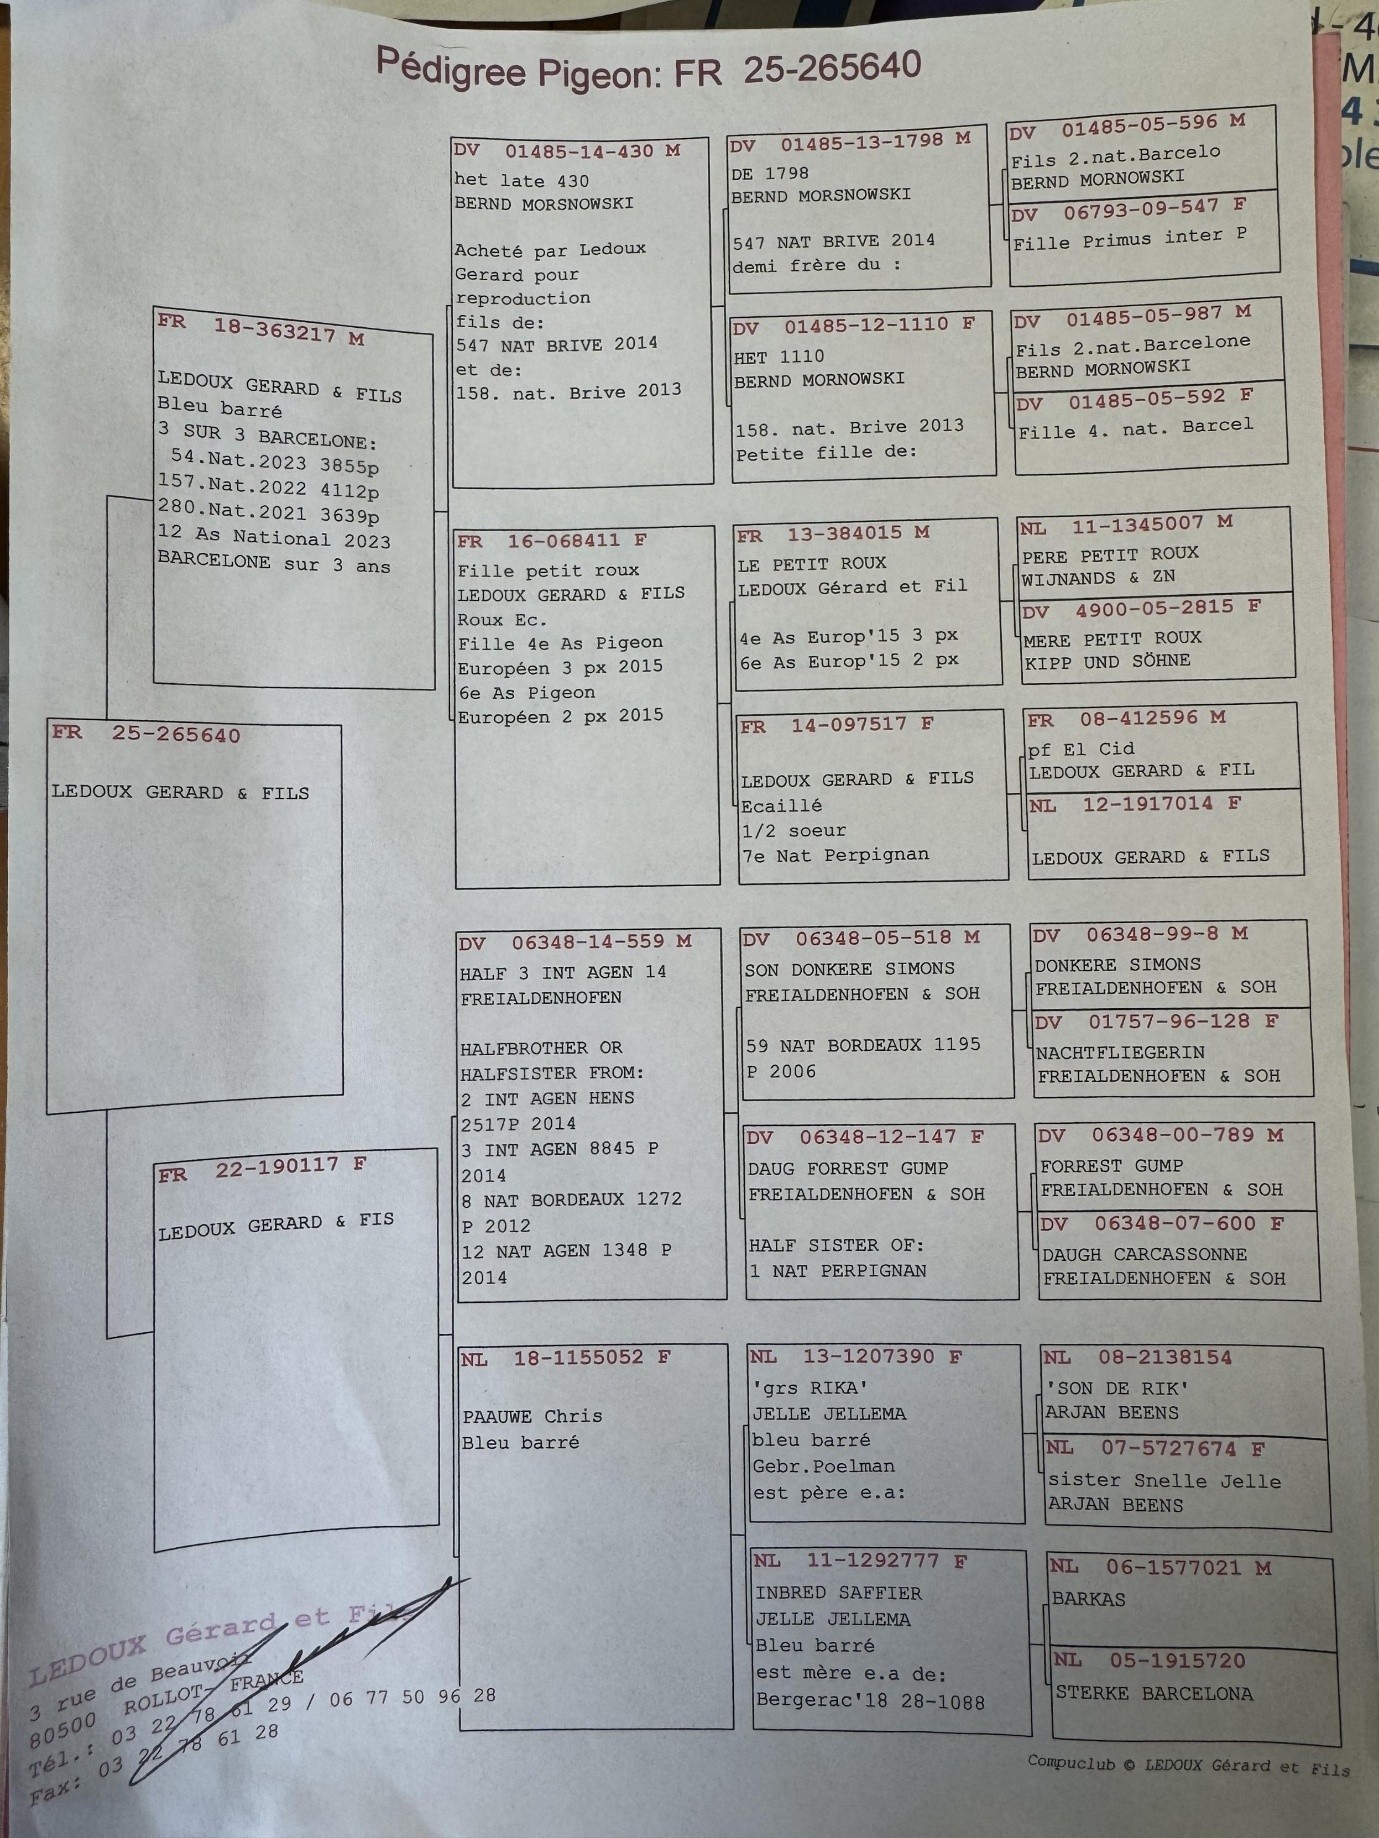 Pédigree Pigeon: FR 25-265640
FR 25-265640
LEDOUX GERARD & FILS
FR 18-363217 M
LEDOUX GERARD & FILS
Bleu barré
3 SUR 3 BARCELONE:
54.Nat.2023 3855p
157.Nat.2022 4112p
280.Nat.2021 3639p
12 As National 2023
BARCELONE sur 3 ans
FR 22-190117 F
LEDOUX GERARD & FIS
DV 01485-14-430 M
het late 430
BERND MORSNOWSKI
Acheté par Ledoux
Gerard pour
reproduction
fils de:
547 NAT BRIVE 2014
et de:
158. nat. Brive 2013
FR 16-068411 F
Fille petit roux
LEDOUX GERARD & FILS
Roux Ec.
Fille 4e As Pigeon
Européen 3 px 2015
6e As Pigeon
Européen 2 px 2015
DV 06348-14-559 M
HALF 3 INT AGEN 14
FREIALDENHOFEN
HALFBROTHER OR
HALFSISTER FROM:
2 INT AGEN HENS
2517P 2014
3 INT AGEN 8845 P
2014
8 NAT BORDEAUX 1272
P 2012
12 NAT AGEN 1348 P
2014
NL 18-1155052 F
PAAUWE Chris
Bleu barré
DV 01485-13-1798 M
DE 1798
BERND MORSNOWSKI
547 NAT BRIVE 2014
demi frère du :
DV 01485-12-1110 F
HET 1110
BERND MORNOWSKI
158. nat. Brive 2013
Petite fille de:
FR 13-384015 M
LE PETIT ROUX
LEDOUX Gérard et Fil
4e As Europ'15 3 px
6e As Europ'15 2 px
FR 14-097517 F
LEDOUX GERARD & FILS
Ecaillé
1/2 soeur
7e Nat Perpignan
DV 06348-05-518 M
SON DONKERE SIMONS
FREIALDENHOFEN & SOH
59 NAT BORDEAUX 1195
P 2006
DV 06348-12-147 F
DAUG FORREST GUMP
FREIALDENHOFEN & SOH
HALF SISTER OF:
1 NAT PERPIGNAN
NL 13-1207390 F
'grs RIKA'
JELLE JELLEMA
bleu barré
Gebr.Poelman
est père e.a:
NL 11-1292777 F
INBRED SAFFIER
JELLE JELLEMA
Bleu barré
est mère e.a de:
Bergerac'18 28-1088
DV 01485-05-596 M
Fils 2.nat.Barcelo
BERND MORNOWSKI
DV 06793-09-547 F
Fille Primus inter P
DV 01485-05-987 M
Fils 2.nat.Barcelone
BERND MORNOWSKI
DV 01485-05-592 F
Fille 4. nat. Barcel
NL 11-1345007 M
PERE PETIT ROUX
WIJNANDS & ZN
DV 4900-05-2815 F
MERE PETIT ROUX
KIPP UND SÖHNE
FR 08-412596 M
pf El Cid
LEDOUX GERARD & FIL
NL 12-1917014 F
LEDOUX GERARD & FILS
DV 06348-99-8 M
DONKERE SIMONS
FREIALDENHOFEN & SOH
DV 01757-96-128 F
NACHTFLIEGERIN
FREIALDENHOFEN & SOH
DV 06348-00-789 M
FORREST GUMP
FREIALDENHOFEN & SOH
DV 06348-07-600 F
DAUGH CARCASSONNE
FREIALDENHOFEN & SOH
NL 08-2138154
'SON DE RIK'
ARJAN BEENS
NL 07-5727674 F
sister Snelle Jelle
ARJAN BEENS
NL 06-1577021 M
BARKAS
NL 05-1915720
STERKE BARCELONA
LEDOUX Gérard et Fils
3 rue de Beauvoir
80500 ROLLOT- FRANCE
Tél.: 03 22 78 61 29 / 06 77 50 96 28
Fax: 03 22 78 61 28
Compuclub © LEDOUX Gérard et Fils